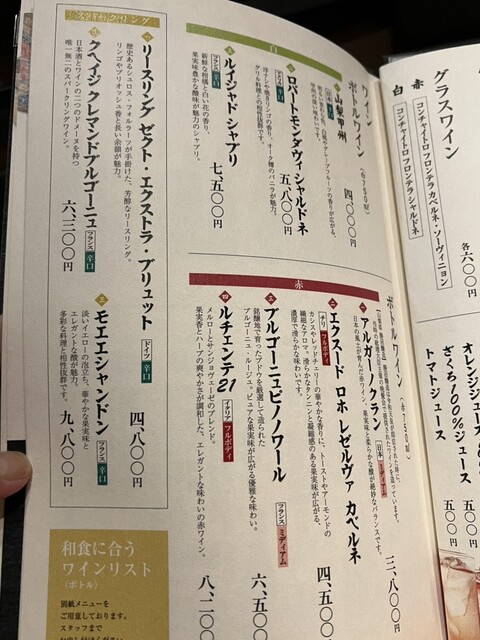 グラスワイン
赤
コンチャイトロ フロンテラ カベルネ・ソーヴィニョン
白
コンチャイトロ フロンテラ シャルドネ
各六〇〇円
オレンジジュース 五〇〇円
ざくろ100%ジュース 五〇〇円
トマトジュース 五〇〇円
ボトルワイン
白
一 山梨甲州
日本 辛口
四、〇〇〇円
二 ロバートモンダヴィ シャルドネ
洋ナシや焼きリンゴの香り、オーク樽のバニラが魅力。
グリル料理との相性抜群です。
五、八〇〇円
三 ルイジャド シャブリ
フランス 辛口
新鮮な柑橘と白い花の香り、
果実味豊かな酸味が魅力のシャブリ。
七、五〇〇円
スパークリング
一 リースリング ゼクト・エクストラ・ブリュット
歴史あるシュロス・フォルラーツが手掛けた、芳醇なリースリング。
リンゴやブリオッシュ香と長い余韻が魅力。
ドイツ 辛口
四、八〇〇円
二 クヘイジ クレマンドブルゴーニュ
フランス 辛口
日本酒とワインの二つのドメーヌを持つ
唯一無二のスパークリングワイン。
六、三〇〇円
三 モエエシャンドン
フランス 辛口
淡いイエローの泡立ち、華やかな果実味と
エレガントな酸が魅力。
多彩な料理と相性抜群です。
九、八〇〇円
ボトルワイン
赤
一 アルガーノクラン
日本 ミディアム
日本の風土が育んだ赤ワイン、果実味と柔らかな酸が絶妙なバランスです。
三、八〇〇円
二 エクスード ロホ レゼルヴァ カベルネ
チリ フルボディ
カシスやレッドチェリーの華やかな香りに、トーストやアーモンドの
繊細なアロマ。滑らかなタンニンと凝縮感のある果実味が広がる、
濃厚で滑らかな味わい。
四、五〇〇円
三 ブルゴーニュピノノワール
フランス ミディアム
銘醸地で育ったブドウを厳選して造られた
ブルゴーニュ・ルージュ。ピュアな果実味が広がる優雅な味わい。
六、五〇〇円
四 ルチェンテ21
イタリア フルボディ
メルローとサンジョヴェーゼのブレンド。
果実香とハーブの爽やかさが調和した、エレガントな味わいの赤ワイン。
八、二〇〇円
和食に合う
ワインリスト
(ボトル)
別紙メニューを
ご用意しております。
スタッフまで